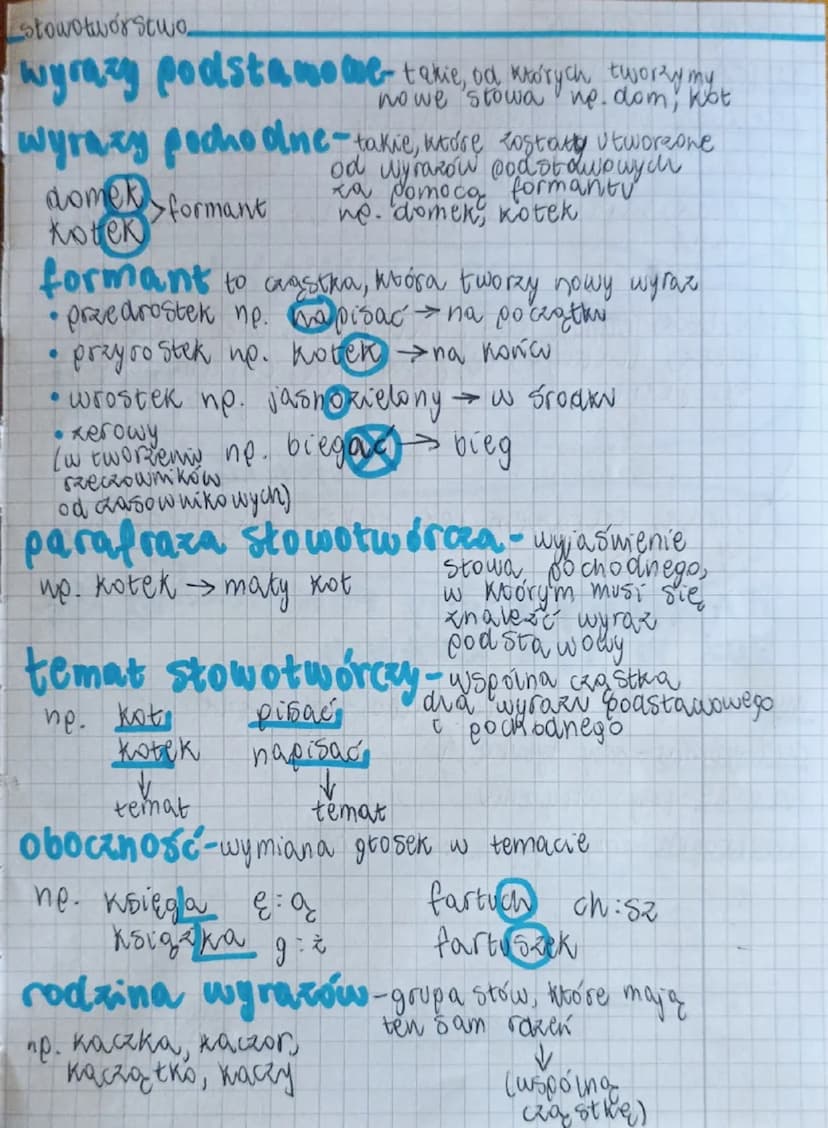 słowotwórstwo
wyrazy podstawowe - takie, od których tworzymy
nowe słowa np. dom, kot
wyrazy pochodne - takie, które zostały utworzone
od wyrazów podstawowych
za pomocą formantu
np. domek, kotek
domek
kotek
> formant
formant to cząstka, która tworzy nowy wyraz
• przedrostek np. napisać → na początku
• przyrostek np. kotek → na końcu
• wrostek np. jasnozielony → w środku
• zerowy
(w tworzeniu np. biegać → bieg
rzeczowników
od czasownikowych)
parafraza słowotwórcza - wyjaśnienie
słowa pochodnego,
w którym musi się
znaleźć wyraz
podstawowy
np. kotek → mały kot
temat słowotwórczy - wspólna cząstka
dla wyrazu podstawowego
i pochodnego
np. kot pisać
kotek napisać
↓ ↓
temat temat
oboczność - wymiana głosek w temacie
np. księga ę : ą fartuch ch : sz
książka g : ż fartuszek
rodzina wyrazów - grupa słów, które mają
ten sam rdzeń
↓
(wspólną
cząstkę)
np. kaczka, kaczor,
kaczątko, kaczy